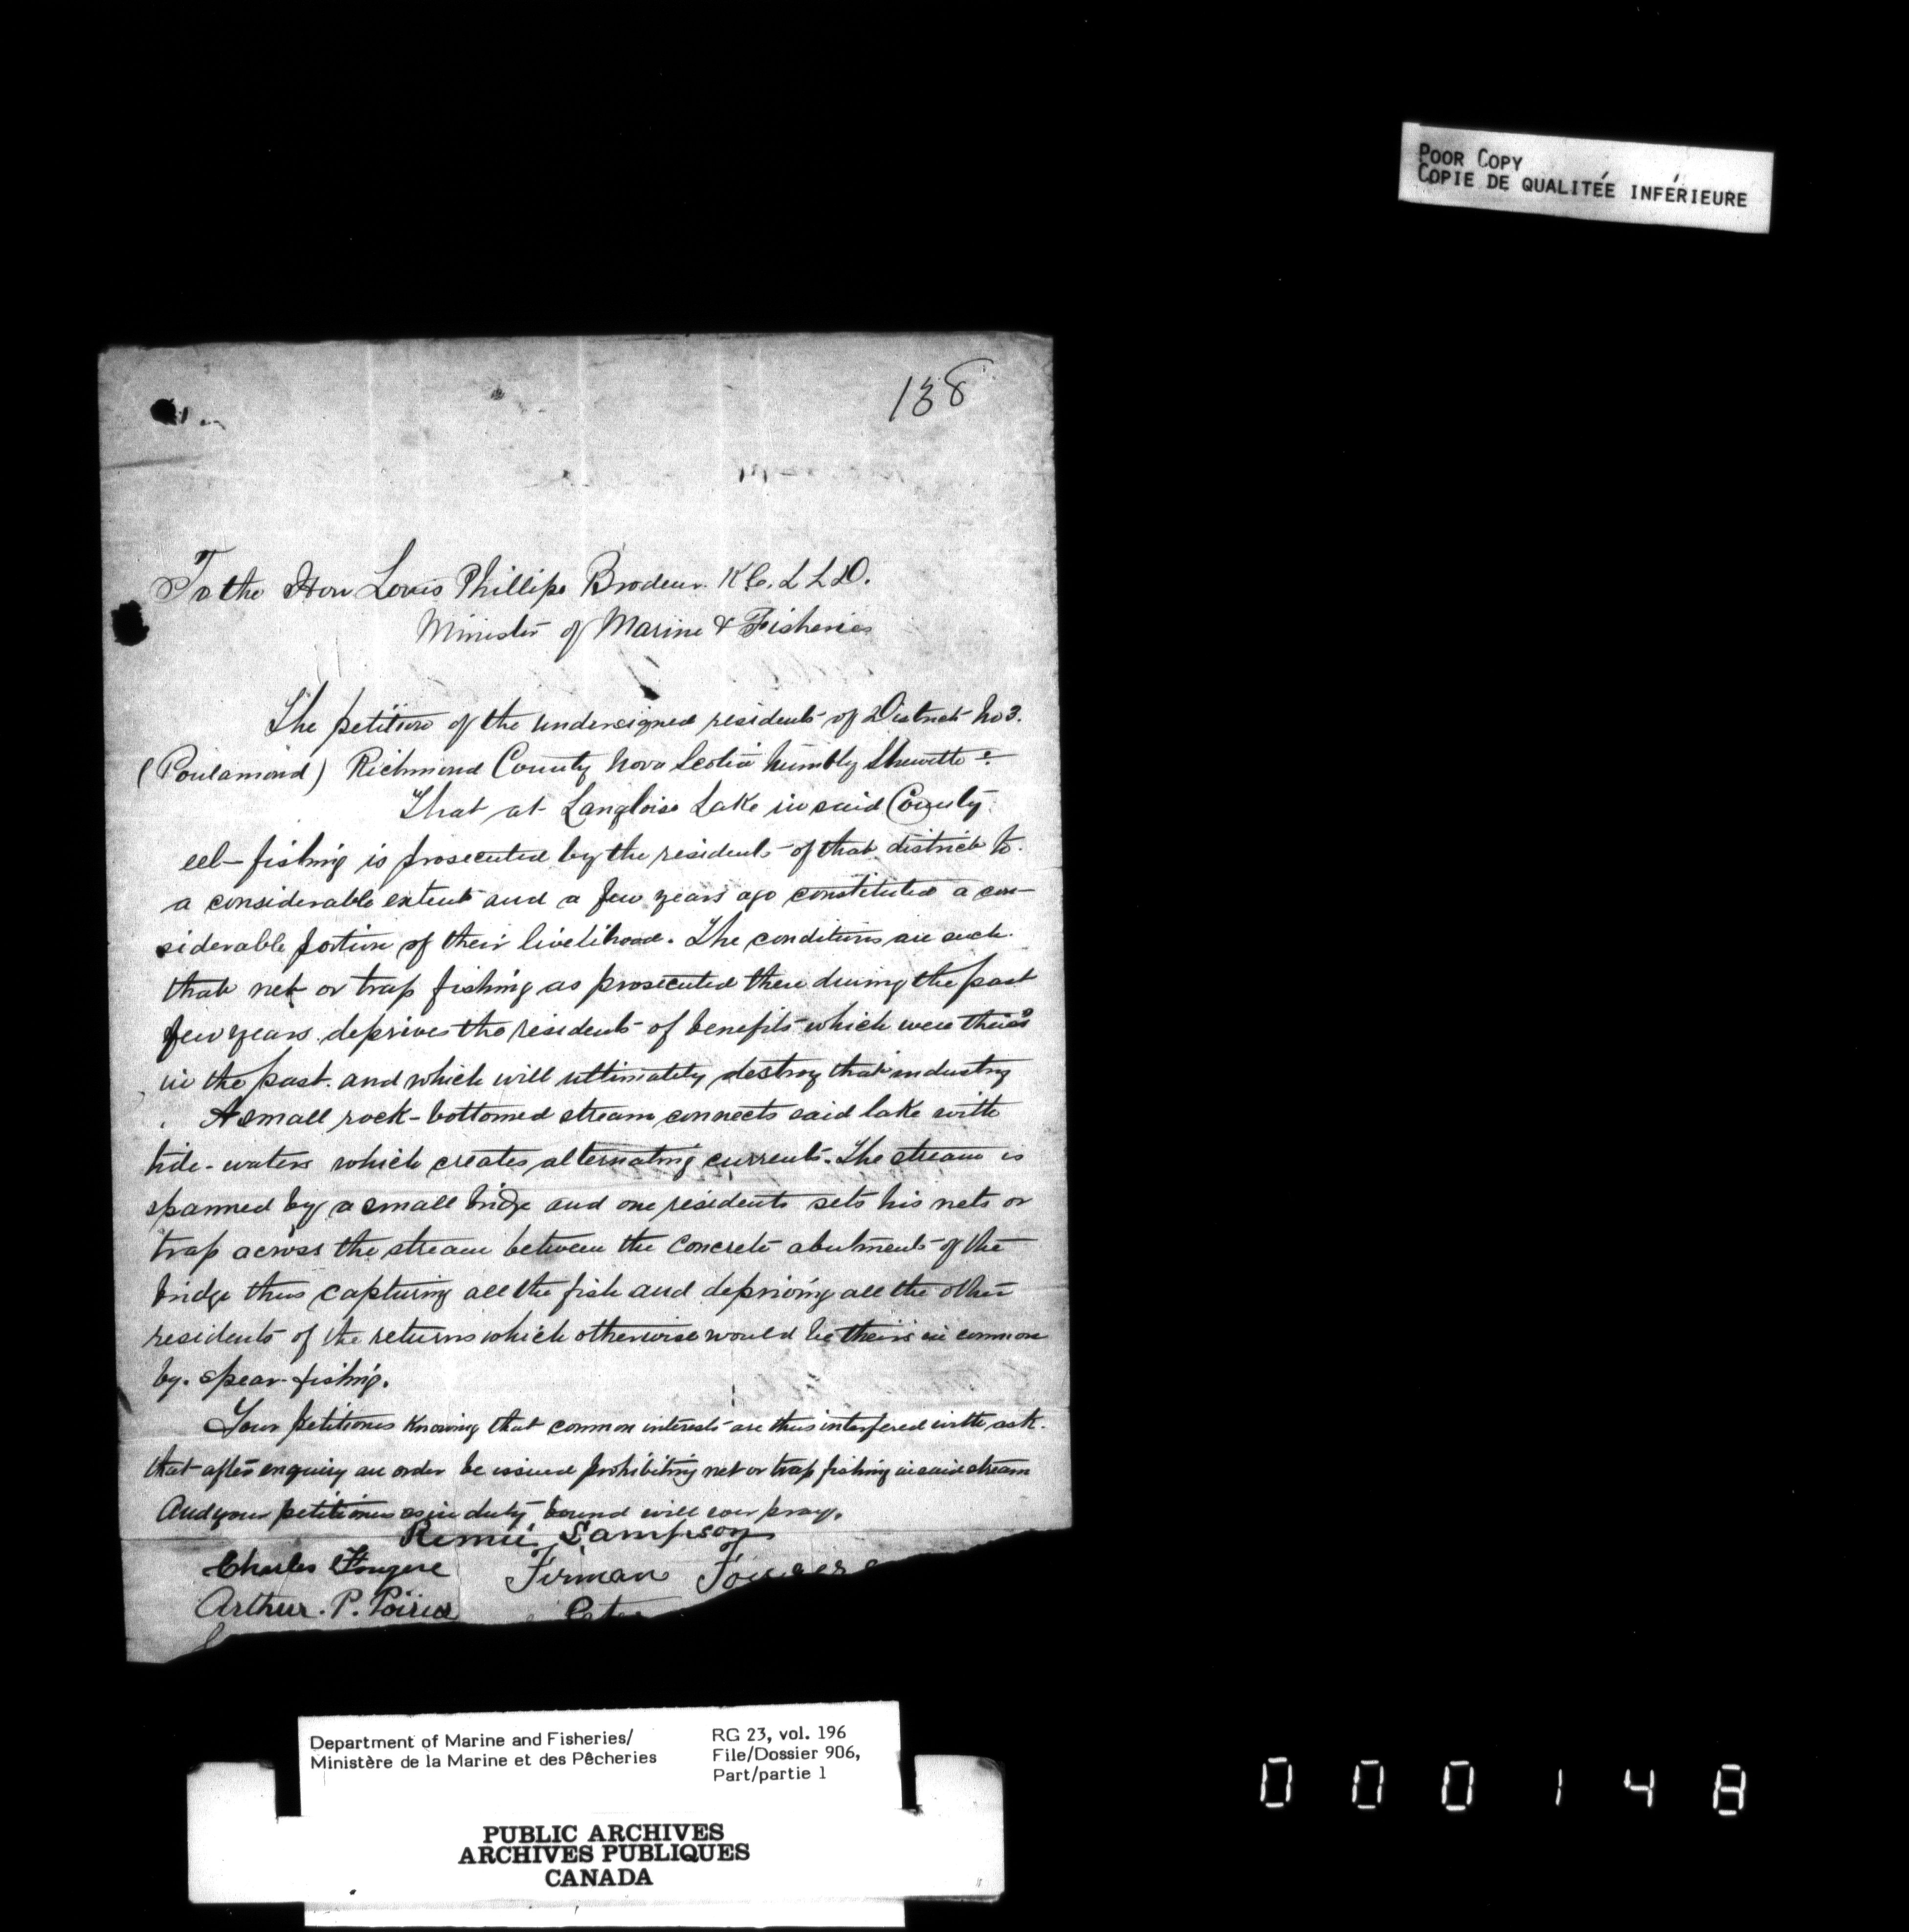 POOR COPY
COPIE DE QUALITÉE INFÉRIEURE
138
To the Hon Louis Phillipe Brodeur. K.C. L L D.
Minister of Marine & Fisheries
The petition of the undersigned residents of District No 3.
(Poulamond) Richmond County Nova Scotia humbly Sheweth :-
That at Langlois Lake in said County
eel-fishing is prosecuted by the residents of that district to
a considerable extent and a few years ago constituted a con-
siderable portion of their livelihood. The conditions are such
that net or trap fishing as prosecuted there during the past
few years deprives the residents of benefits which were theirs
in the past. and which will ultimately destroy that industry
A small rock-bottomed stream connects said lake with
tide-waters which creates alternating currents. The stream is
spanned by a small bridge and one residents sets his nets or
trap across the stream between the concrete abutments of the
bridge thus capturing all the fish and depriving all the other
residents of the returns which otherwise would be theirs in common
by. spear-fishing.
Your petitioners knowing that common interests are thus interfered with ask
that after enquiry an order be issued prohibiting net or trap fishing in said stream
And your petitioners as in duty bound will ever pray.
Remii Sampson
Charles Fougere Firman Fougere
Arthur. P. Poirier Peter
Department of Marine and Fisheries/ RG 23, vol. 196
Ministère de la Marine et des Pêcheries File/Dossier 906,
Part/partie 1
PUBLIC ARCHIVES
ARCHIVES PUBLIQUES
CANADA
000148